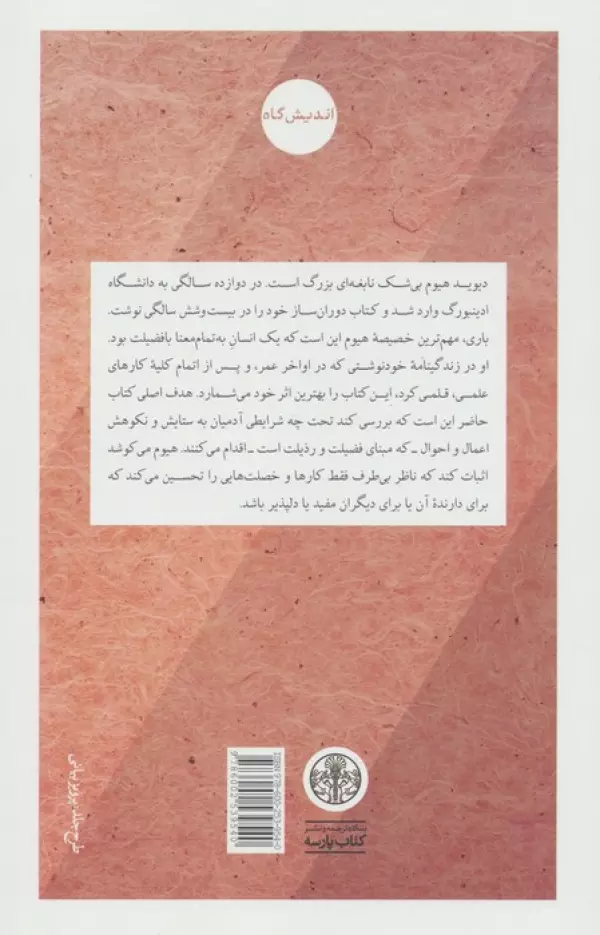 اندیش‌گاه
دیوید هیوم بی‌شک نابغه‌ای بزرگ است. در دوازده سالگی به دانشگاه
ادینبورگ وارد شد و کتاب دوران‌ساز خود را در بیست‌وشش سالگی نوشت.
باری، مهم‌ترین خصیصهٔ هیوم این است که یک انسانِ به‌تمام‌معنا بافضیلت بود.
او در زندگینامهٔ خودنوشتی که در اواخر عمر، و پس از اتمام کلیهٔ کارهای
علمی، قلمی کرد، این کتاب را بهترین اثر خود می‌شمارد. هدف اصلی کتاب
حاضر این است که بررسی کند تحت چه شرایطی آدمیان به ستایش و نکوهش
اعمال و احوال ـ که مبنای فضیلت و رذیلت است ـ اقدام می‌کنند. هیوم می‌کوشد
اثبات کند که ناظر بی‌طرف فقط کارها و خصلت‌هایی را تحسین می‌کند که
برای دارندهٔ آن یا برای دیگران مفید یا دلپذیر باشد.
بنگاه ترجمه و نشر
کتاب پارسه
ISBN 978-600-253-954-0
9 786002 539540
طرح جلد: پرویز بیانی